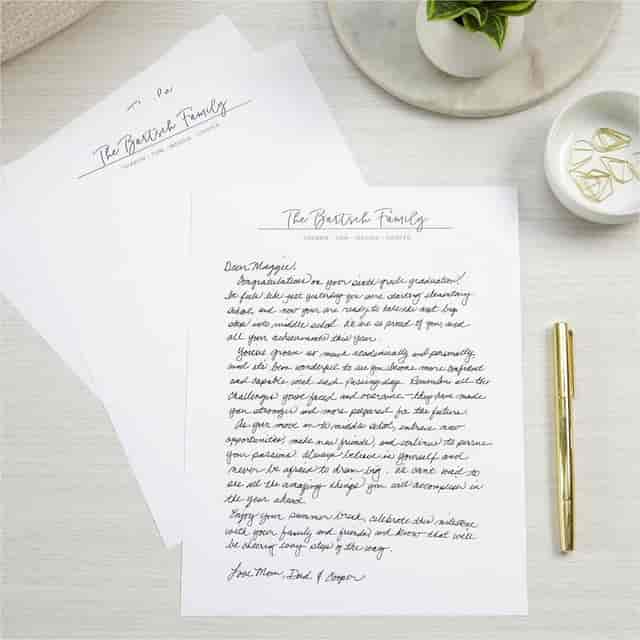 The Bartsch Family
The Bartsch Family
TOM · MAGGIE · COOPER
Dear Maggie,
Congratulations on your sixth grade graduation!
It feels like just yesterday you were starting elementary
school, and now you are ready to take the next big
step into middle school. We are so proud of you and
all your achievements this year.
You've grown so much academically and personally,
and it's been wonderful to see you become more confident
and capable with each passing day. Remember all the
challenges you've faced and overcome - they have made
you stronger and more prepared for the future.
As you move on to middle school, embrace new
opportunities, make new friends, and continue to pursue
your passions. Always believe in yourself and
never be afraid to dream big. We can't wait to
see all the amazing things you will accomplish in
the year ahead.
Enjoy your summer break, celebrate this milestone
with your family and friends, and know that we'll
be cheering every step of the way.
Love Mom, Dad & Cooper